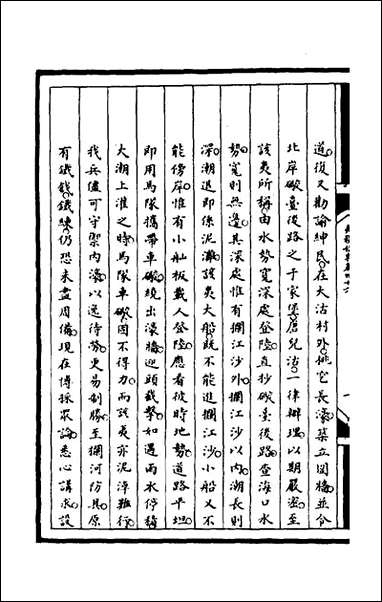 道後又勸諭紳民在大沽村外挑乞長濠築立圍牆並令
北岸礮臺後路之于家堡唐兒沽一律辦理以期嚴密至
該夷所稱由水勢寬深處登陸直抄礮臺後路查海口水
勢寬則無邊其深處惟有攔江沙外攔江沙以內潮長則
深潮退即係泥灘該夷大船既不能進攔江沙小船又不
能傍岸惟有小舢板載人登陸應看彼時地勢道路平坦
即用馬隊攜帶車礮繞出濠牆迎頭截擊如遇雨水停積
大潮上淮之時馬隊車礮因不得力而該夷亦泥濘難行
我兵儘可守禦內濠以逸待勞更易制勝至攔河防具原
有鐵鉸鐵練仍恐未盡周備現在博採眾論悉心講求設